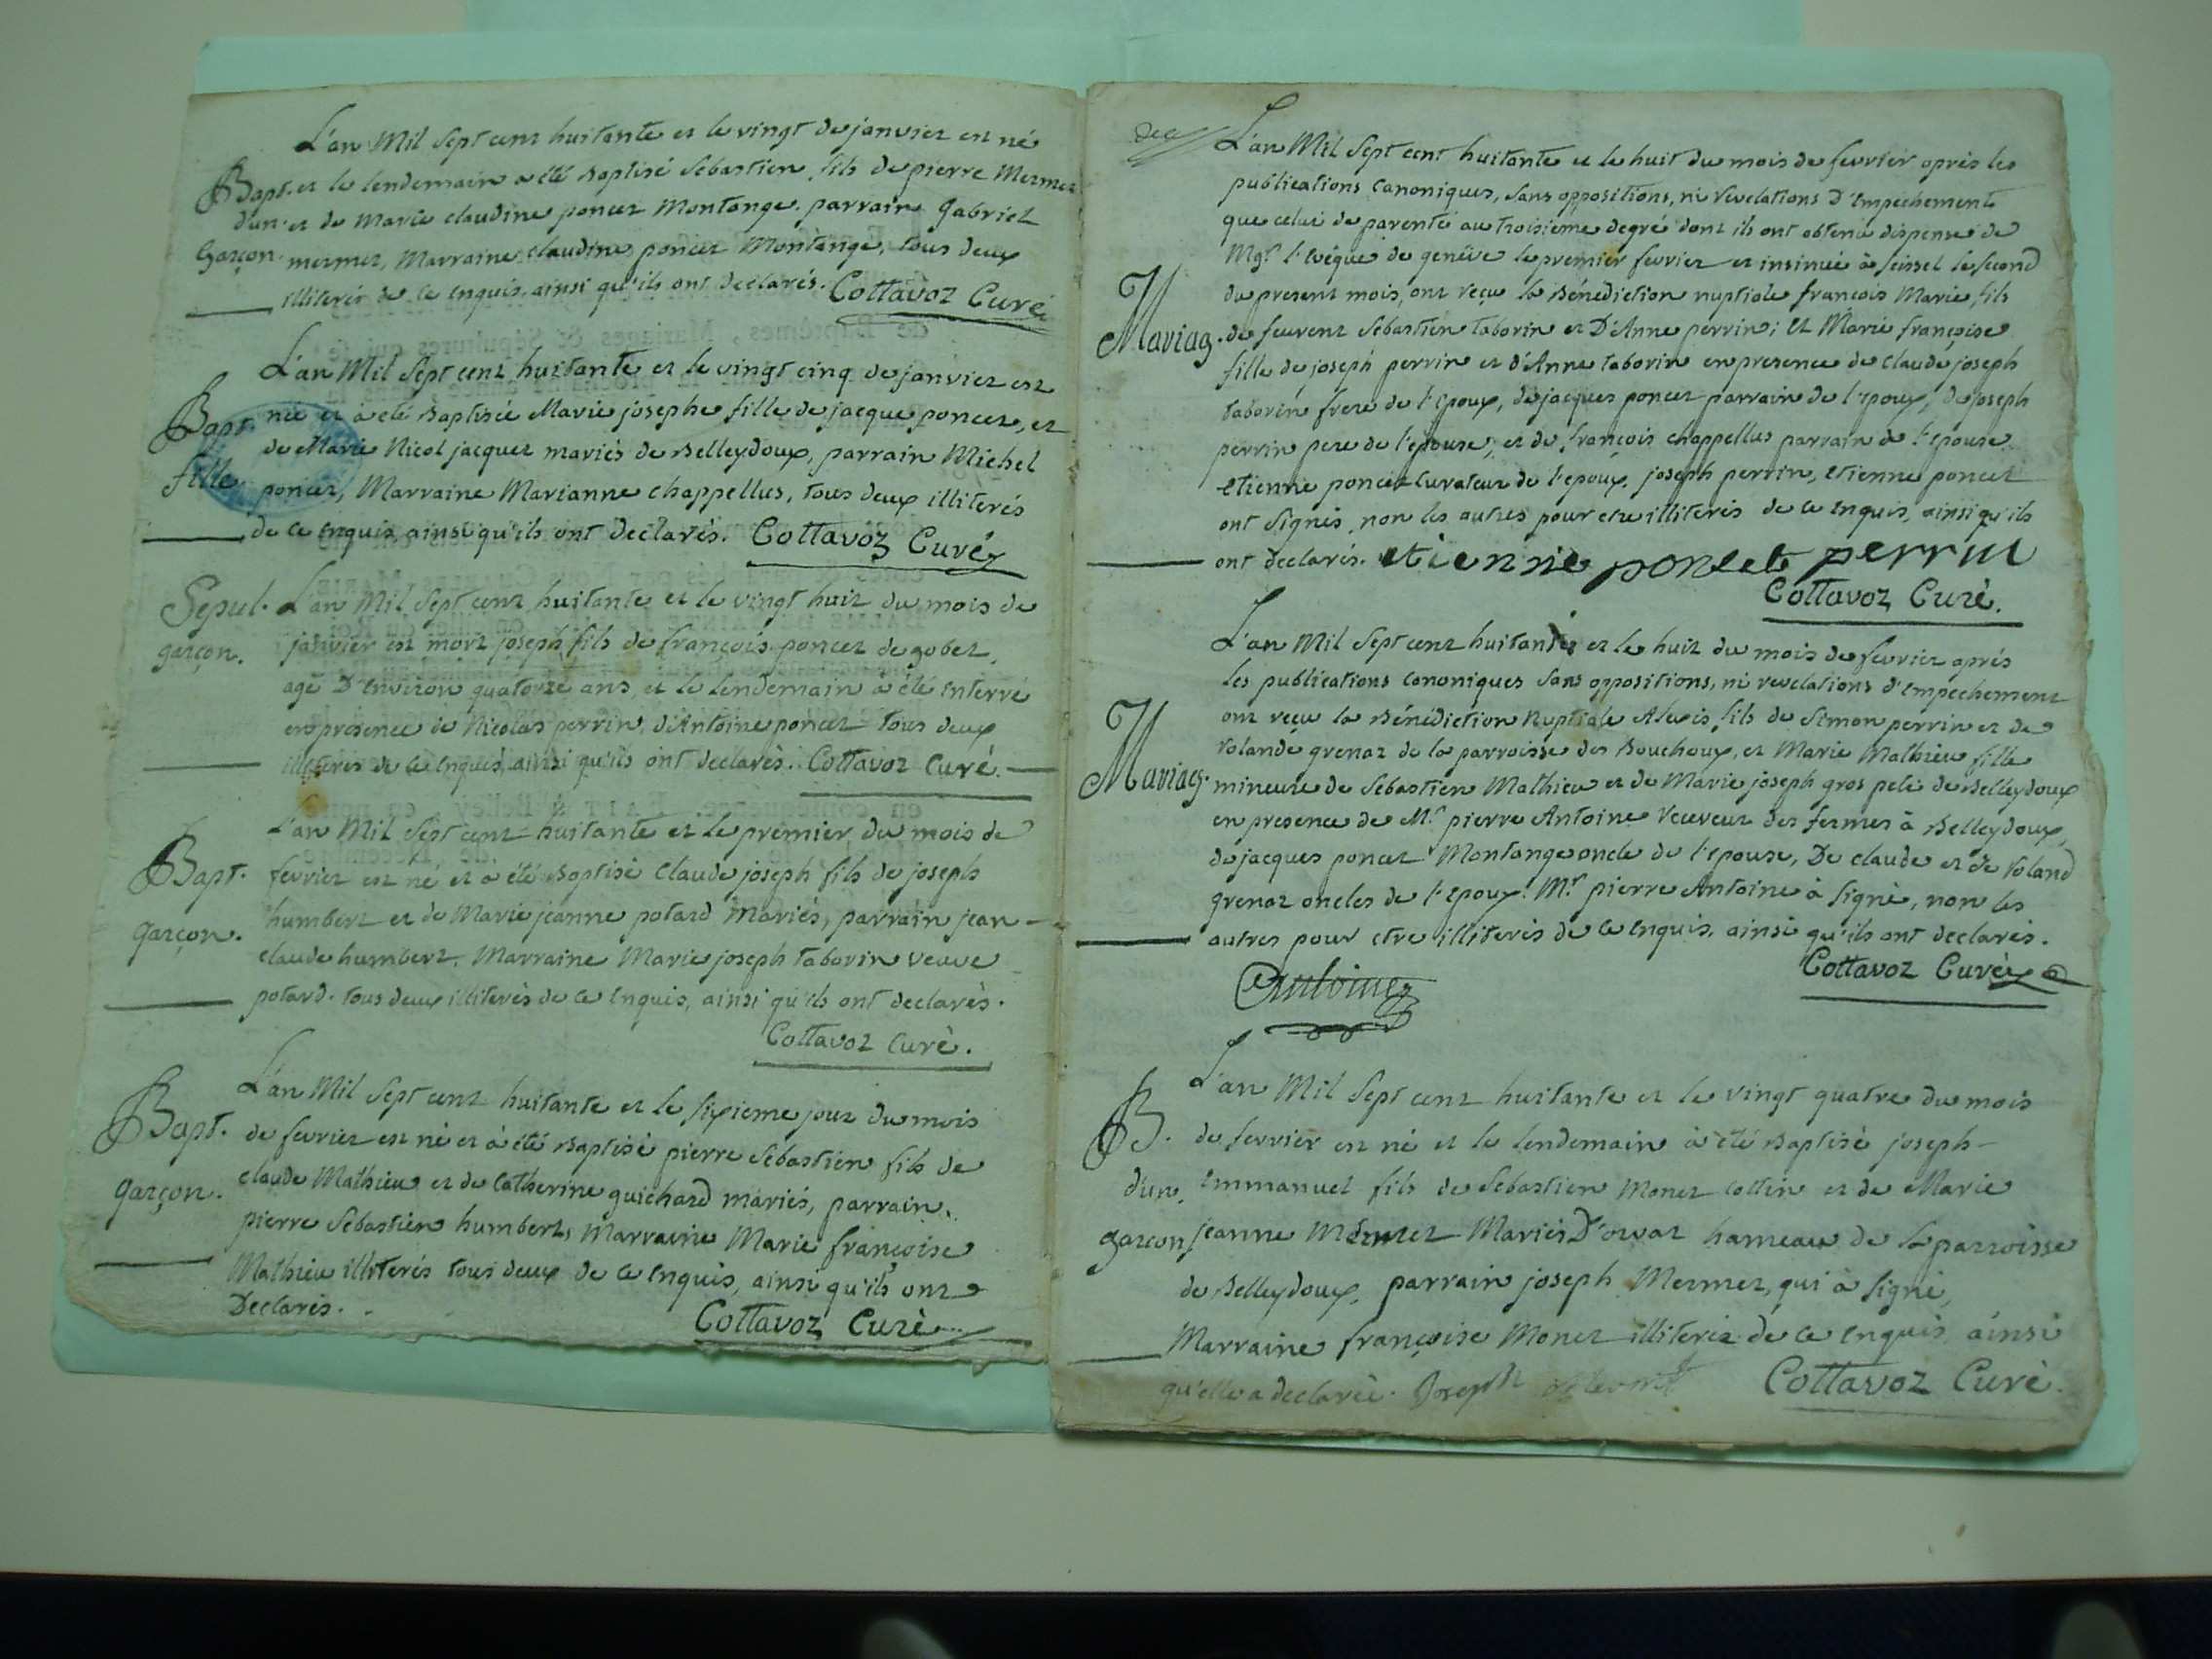 L'an Mil Sept cent huitante et le vingt de janvier est né
Bapt. et le lendemain a été Baptisé Sébastien fils de pierre Mermet
d'un et de Marie claudine poncet Montange. parrain Gabriel
Garçon. mermet, Marraine claudine poncet Montange, tous deux
illiterés de ce enquis, ainsi qu'ils ont declarés. Cottavoz Curé
L'an Mil Sept cent huitante et le vingt cinq de janvier est
Bapt. née et à eté Baptisée Marie josephe fille de jacque poncet, et
de Marie Nicol jacquet mariés de Belleydoux, parrain Michel
fille. poncet, Marraine Marianne chappellus, tous deux illiterés
de ce enquis, ainsi qu'ils ont declarés. Cottavoz Curé
Sepul. L'an Mil Sept cent huitante et le vingt huit du mois de
garçon. janvier est mort joseph fils de françois poncet de gobet,
agé D'environ quatorze ans et le lendemain à été enterré
en présence de Nicolas perrin, d'Antoine poncet tous deux
illiterés de ce enquis, ainsi qu'ils ont declarés. Cottavoz Curé.
L'an Mil Sept cent huitante et le premier du mois de
Bapt. fevrier est né et à été Baptisé Claude joseph fils de joseph
humbert et de Marie jeanne potard Mariés, parrain jean-
garçon. claude humbert. Marraine Marie joseph taborin veuve
potard. tous deux illiterés de ce enquis, ainsi qu'ils ont declarés.
Cottavoz Curé.
L'an Mil Sept cent huitante et le sixieme jour du mois
Bapt. de fevrier est né et à été Baptisé pierre Sébastien fils de
garçon. claude Mathieu et de Catherine guichard mariés, parrain
pierre Sébastien humbert, Marraine Marie françoise
Mathieu illiterés tous deux de ce enquis, ainsi qu'ils ont
Declarés. Cottavoz Curé
L'an Mil Sept cent huitante et le huit du mois de fevrier après les
publications Canoniques, Sans oppositions, ni revelations D'empechement
que celui de parenté au troisieme degré dont ils ont obtenu dispense de
Mgr. l'evêque de genêve le premier fevrier et insinuée à seissel le second
du present mois, ont reçu la Bénédiction nuptiale françois Marie, fils
Mariag. de feu Sébastien taborin et D'Anne perrin; et Marie françoise
fille de joseph perrin et d'Anne taborin en presence de Claude joseph
taborin frere de l'epoux, de jacques poncet parrain de l'epoux, de joseph
perrin pere de l'epouse, et de françois chappellus parrain de l'epouse
etienne poncet Curateur de l'epoux. joseph perrin, etienne poncet
ont signés, non les autres pour etre illiterés de ce enquis, ainsi qu'ils
ont declarés. etienne poncet perrin
Cottavoz Curé.
L'an Mil Sept cent huitante et le huit du mois de fevrier après
les publications Canoniques Sans oppositions, ni revelations d'empechement
ont reçu la Bénédiction Nuptiale Alexis fils de Simon perrin et de
rolande grenaz de la parroisse des Bouchoux, et Marie Mathieu fille
Mariag. mineure de Sébastien Mathieu et de Marie joseph gros peli de Belleydoux
en presence de Mr. pierre Antoine receveur des fermes à Belleydoux,
de jacques poncet Montange oncle de l'epouse, De claude et de roland
grenaz oncles de l'epoux. Mr. pierre Antoine à signé, non les
autres pour etre illiterés de ce enquis, ainsi qu'ils ont declarés.
Antoine Cottavoz Curé
L'an Mil Sept cent huitante et le vingt quatre du mois
B. de fevrier est né et le lendemain à été Baptisé joseph-
d'un Emmanuel fils de Sébastien Monet Cottin et de Marie
garçon jeanne Mermet Mariés D'orvaz hameau de la parroisse
de Belleydoux, parrain joseph Mermet, qui à signé,
Marraine françoise Monet illiterée de ce enquis, ainsi
qu'elle a declarée. Joseph Cottavoz Curé.